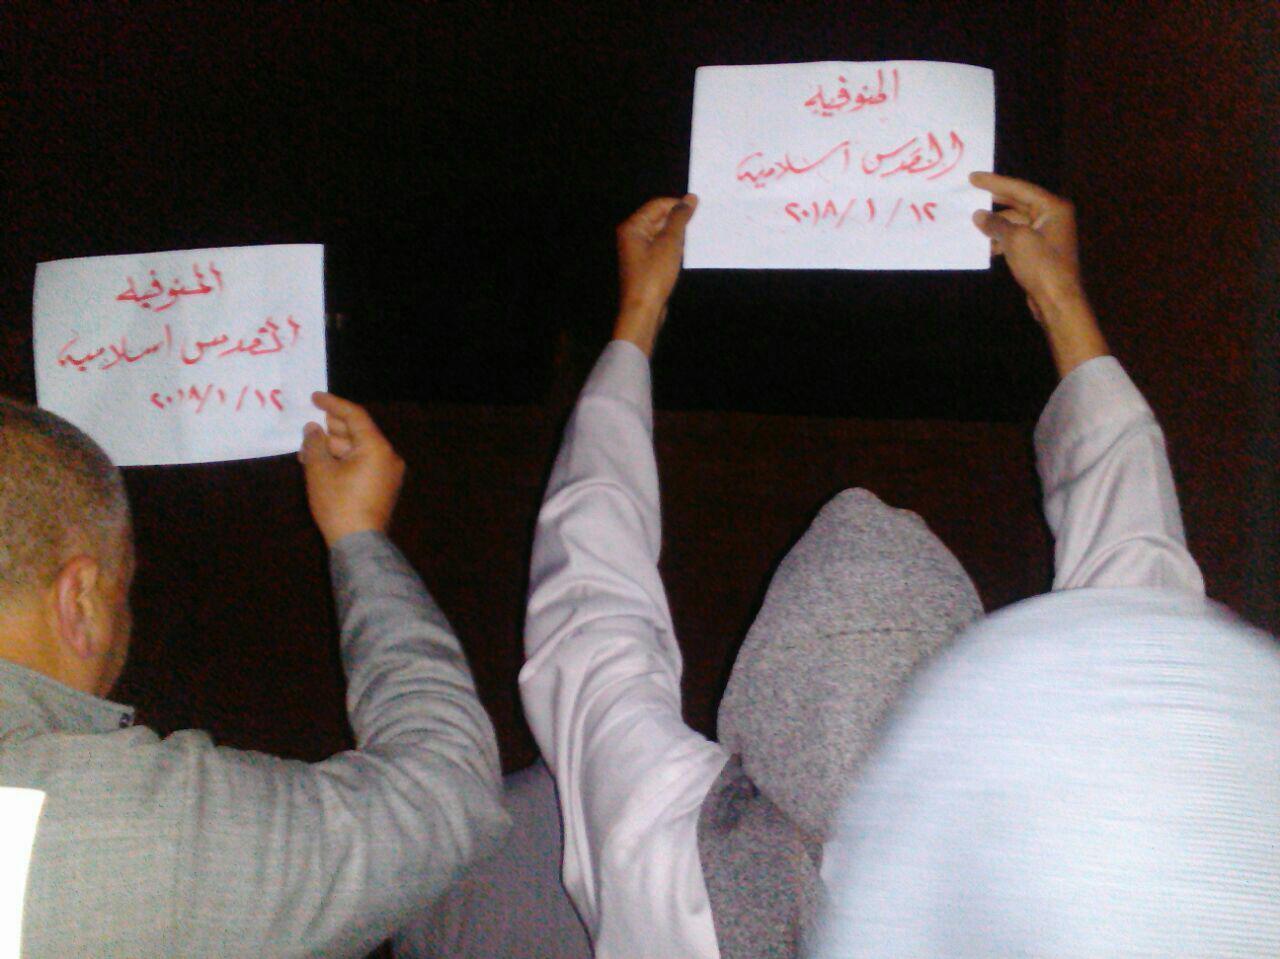 المنوفيه
القدس اسلامية
٢٠١٨/١/١٢
المنوفيه
القدس اسلامية
٢٠١٨/١/١٢